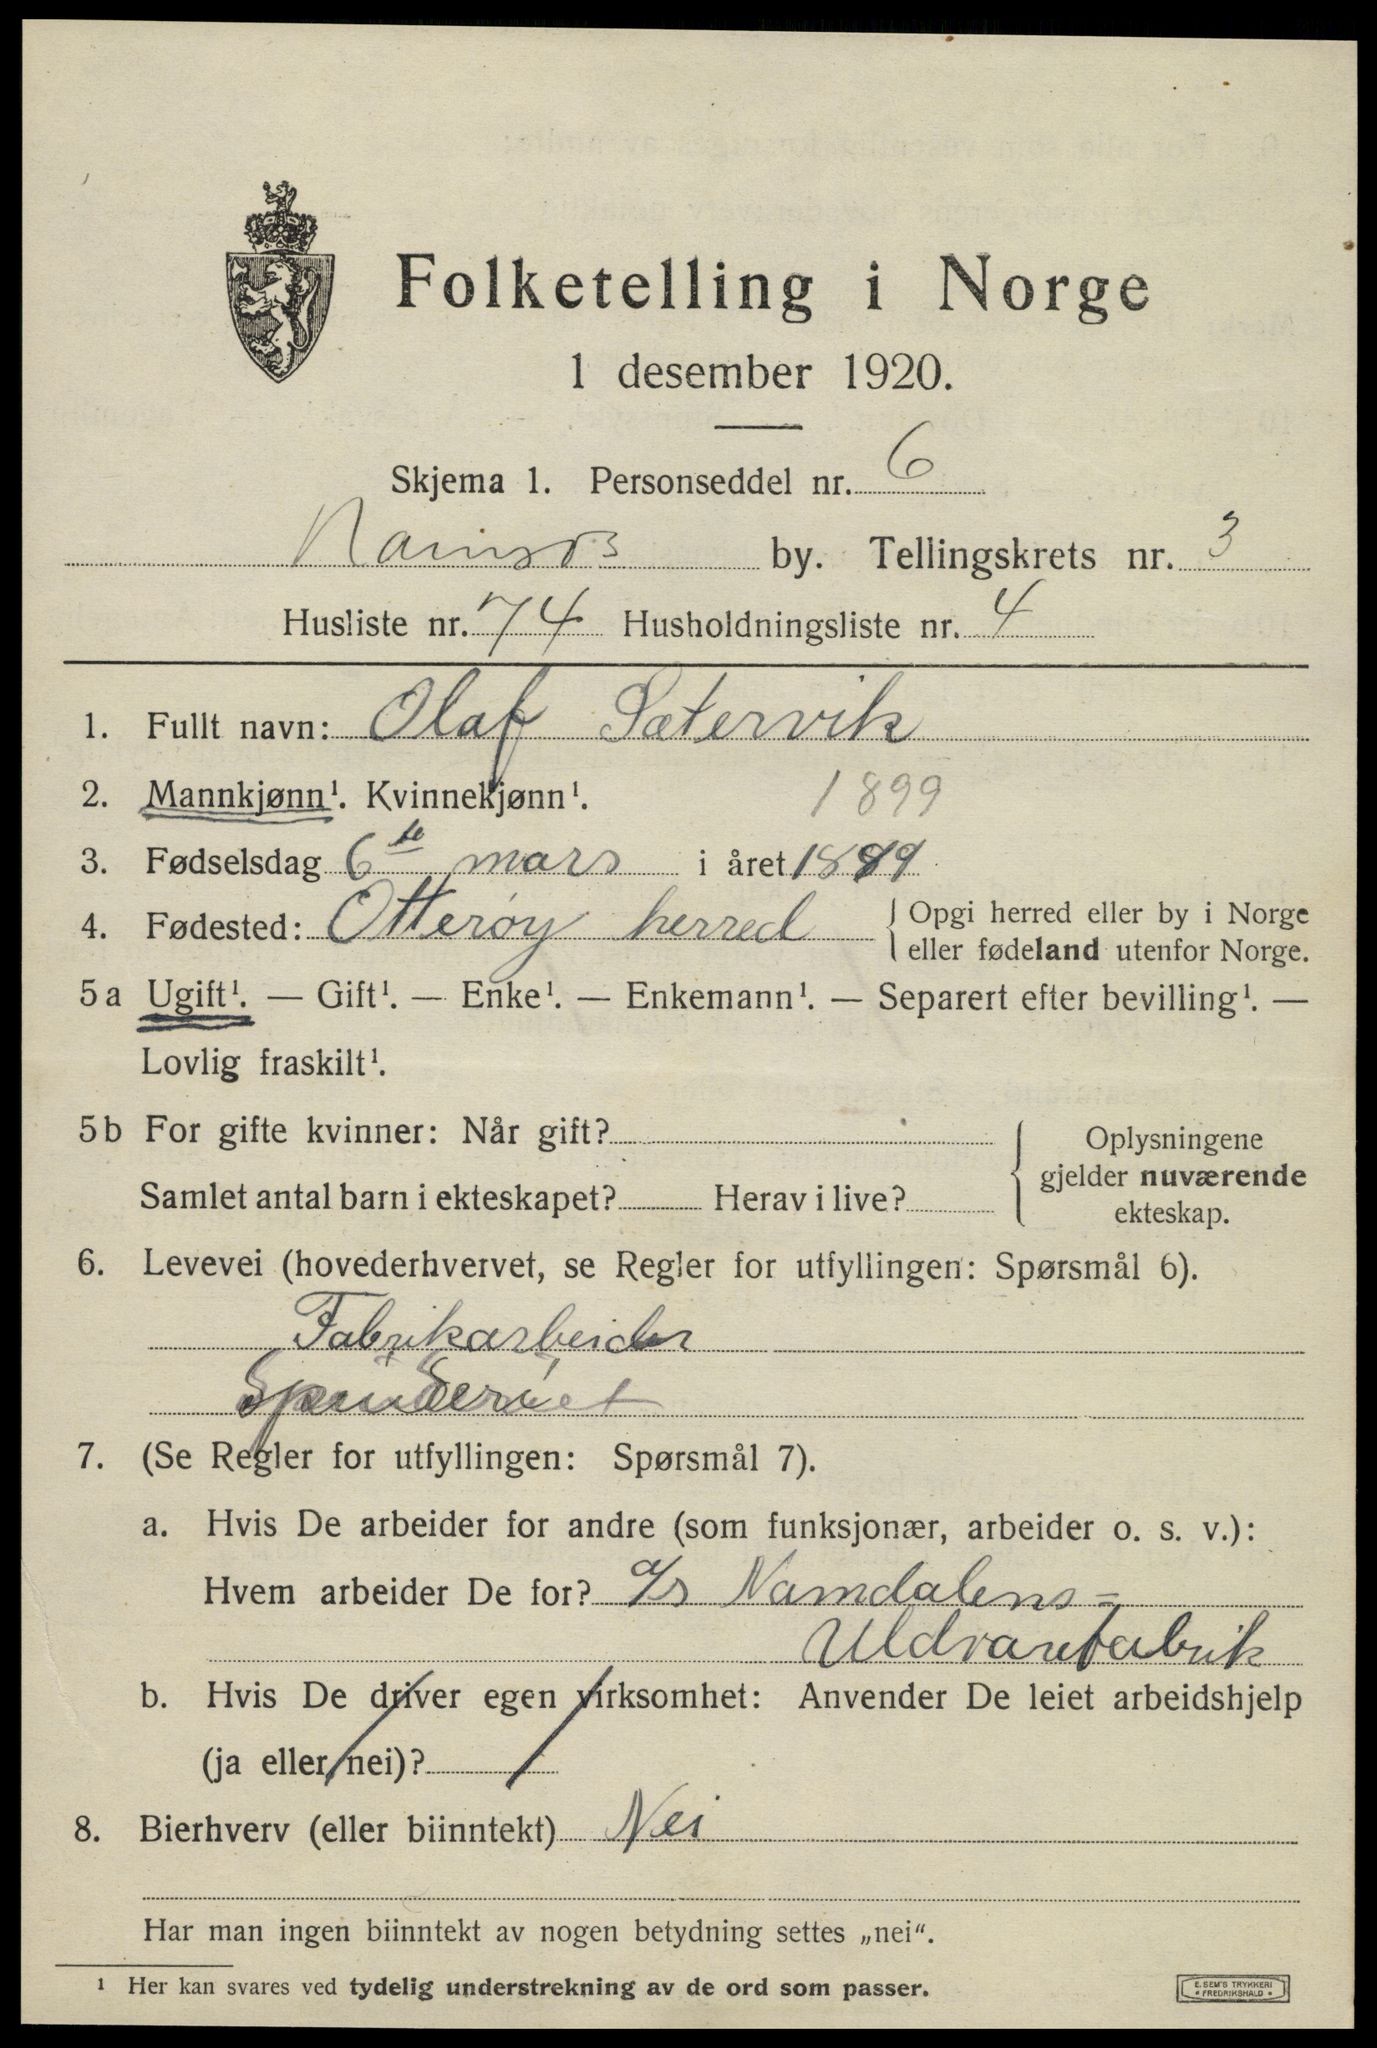 Folketelling i Norge
1 desember 1920.
Skjema 1. Personseddel nr. 6
Namsos by. Tellingskrets nr. 3
Husliste nr. 74 Husholdningsliste nr. 4
1. Fullt navn: Olaf Sætervik
2. Mannkjønn¹. Kvinnekjønn¹. 1899
3. Fødselsdag 6te mars i året 1899
4. Fødested: Otterøy herred { Opgi herred eller by i Norge
eller fødeland utenfor Norge.
5a Ugift¹. — Gift¹. — Enke¹. — Enkemann¹. — Separert efter bevilling¹. —
Lovlig fraskilt¹.
5b For gifte kvinner: Når gift? { Oplysningene
gjelder nuværende
Samlet antal barn i ekteskapet? Herav i live? ekteskap.
6. Levevei (hovederhvervet, se Regler for utfyllingen: Spørsmål 6).
Fabrikarbeider
Spinderiet
7. (Se Regler for utfyllingen: Spørsmål 7).
a. Hvis De arbeider for andre (som funksjonær, arbeider o. s. v.):
Hvem arbeider De for? a/s Namdalens=
Uldvarefabrik
b. Hvis De driver egen virksomhet: Anvender De leiet arbeidshjelp
(ja eller nei)?
8. Bierhverv (eller biinntekt) Nei
Har man ingen biinntekt av nogen betydning settes „nei“.
¹ Her kan svares ved tydelig understrekning av de ord som passer.
E. SEM'S TRYKKERI
FREDRIKSHALD